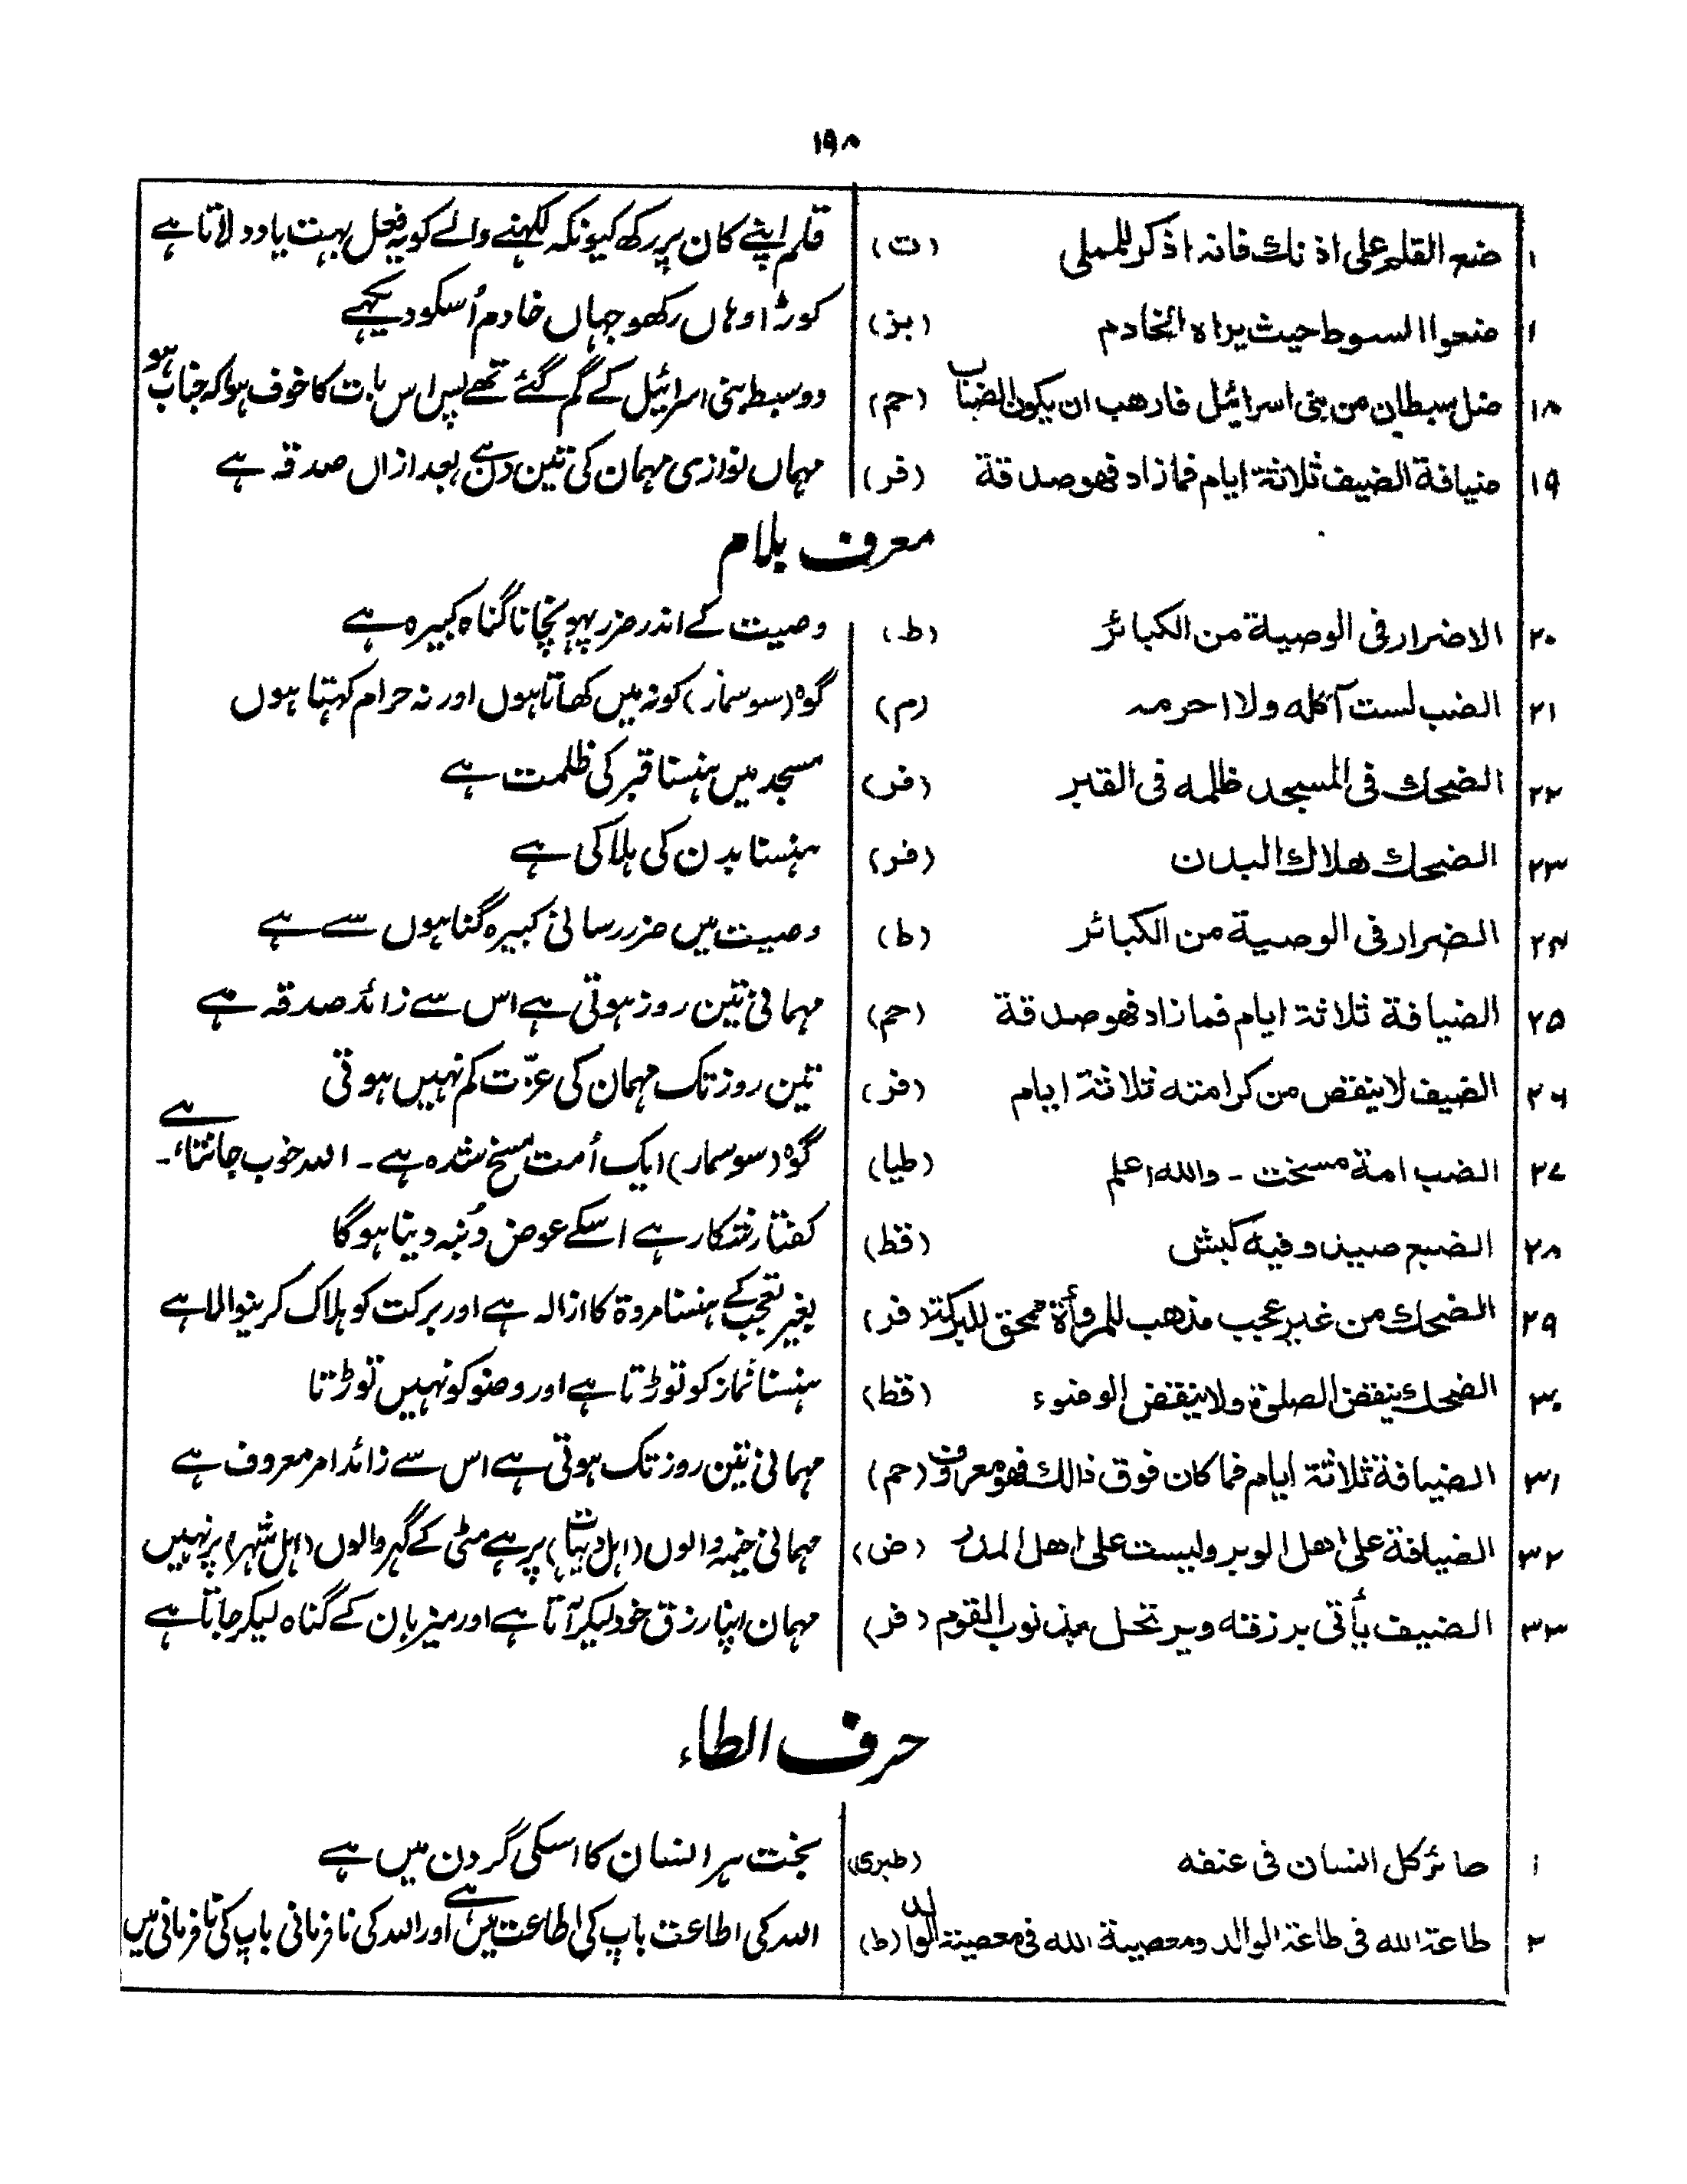 ١٩٨
١ ضع القلم على اذنك فانه اذكر للمملى (ت) قلم اپنے کان پر رکھ کیونکہ لکہنے والے کو یہ فعل بہت یاد دلاتا ہے
١ ضعوا السوط حيث يراه الخادم (بز) کوڑا وہاں رکھو جہاں خادم اُسکو دیکہے
١٨ ضل سبطان من بنى اسرائيل فارهب ان يكون الضباب (حم) دو سبط بنی اسرائیل کے گم گئے تھے پس اس بات کا خوف ہوا کہ ضباب ہو
١٩ ضيافة الضيف ثلاثة ايام فما زاد فهو صدقة (فر) مہماں نوازی مہمان کی تین دن ہے بعد ازاں صدقہ ہے
معرف بلام
٢٠ الاضرار فى الوصية من الكبائر (ط) وصیت کے اندر ضرر پہونچانا گناہ کبیرہ ہے
٢١ الضب لست آكله ولا احرمه (م) گوہ (سوسمار) کو نہ میں کھاتا ہوں اور نہ حرام کہتا ہوں
٢٢ الضحك فى المسجد ظلمه فى القبر (فر) مسجد میں ہنسنا قبر کی ظلمت ہے
٢٣ الضحك هلاك البدن (فر) ہنسنا بدن کی ہلاکی ہے
٢٤ الضرار فى الوصية من الكبائر (ط) وصیت میں ضرر رسانی کبیرہ گناہوں سے ہے
٢٥ الضيافة ثلاثة ايام فما زاد فهو صدقة (حم) مہمانی تین روز ہوتی ہے اس سے زائد صدقہ ہے
٢٦ الضيف لا ينقض من كرامته ثلاثة ايام (فر) تین روز تک مہمان کی عزّت کم نہیں ہوتی
٢٧ الضب امة مسخت - والله اعلم (طيا) گوہ (سوسمار) ایک اُمت مسخ شدہ ہے - اللہ خوب جانتا ہے -
٢٨ الضبع صيد وفيه كبش (قط) کفتار شکار ہے اسکے عوض دُنبہ دینا ہوگا
٢٩ الضحك من غير عجب مذهب للمروأة ممحق للبركة (فر) بغیر تعجب کے ہنسنا مروۃ کا ازالہ ہے اور برکت کو ہلاک کرینوالا ہے
٣٠ الضحك ينقض الصلوة ولا ينقض الوضوء (قط) ہنسنا نماز کو توڑتا ہے اور وضو کو نہیں توڑتا
٣١ الضيافة ثلاثة ايام فما كان فوق ذالك فهو معروف (حم) مہمانی تین روز تک ہوتی ہے اس سے زائد امر معروف ہے
٣٢ الضيافة على اهل الوبر وليست على اهل المدر (ض) مہمانی خیمہ والوں (اہل دیہات) پر ہے مٹی کے گہر والوں (اہل شہر) پر نہیں
٣٣ الضيف يأتى برزقه ويرتحل بذنوب القوم (فر) مہمان اپنا رزق خود لیکر آتا ہے اور میزبان کے گناہ لیکر جاتا ہے
حرف الطاء
١ طائر كل انسان فى عنقه (طبرى) بخت ہر انسان کا اسکی گردن میں ہے
٢ طاعة الله فى طاعة الوالد ومعصية الله فى معصية الوالد (ط) اللہ کی اطاعت باپ کی اطاعت میں ہے اور اللہ کی نافرمانی باپ کی نافرمانی میں